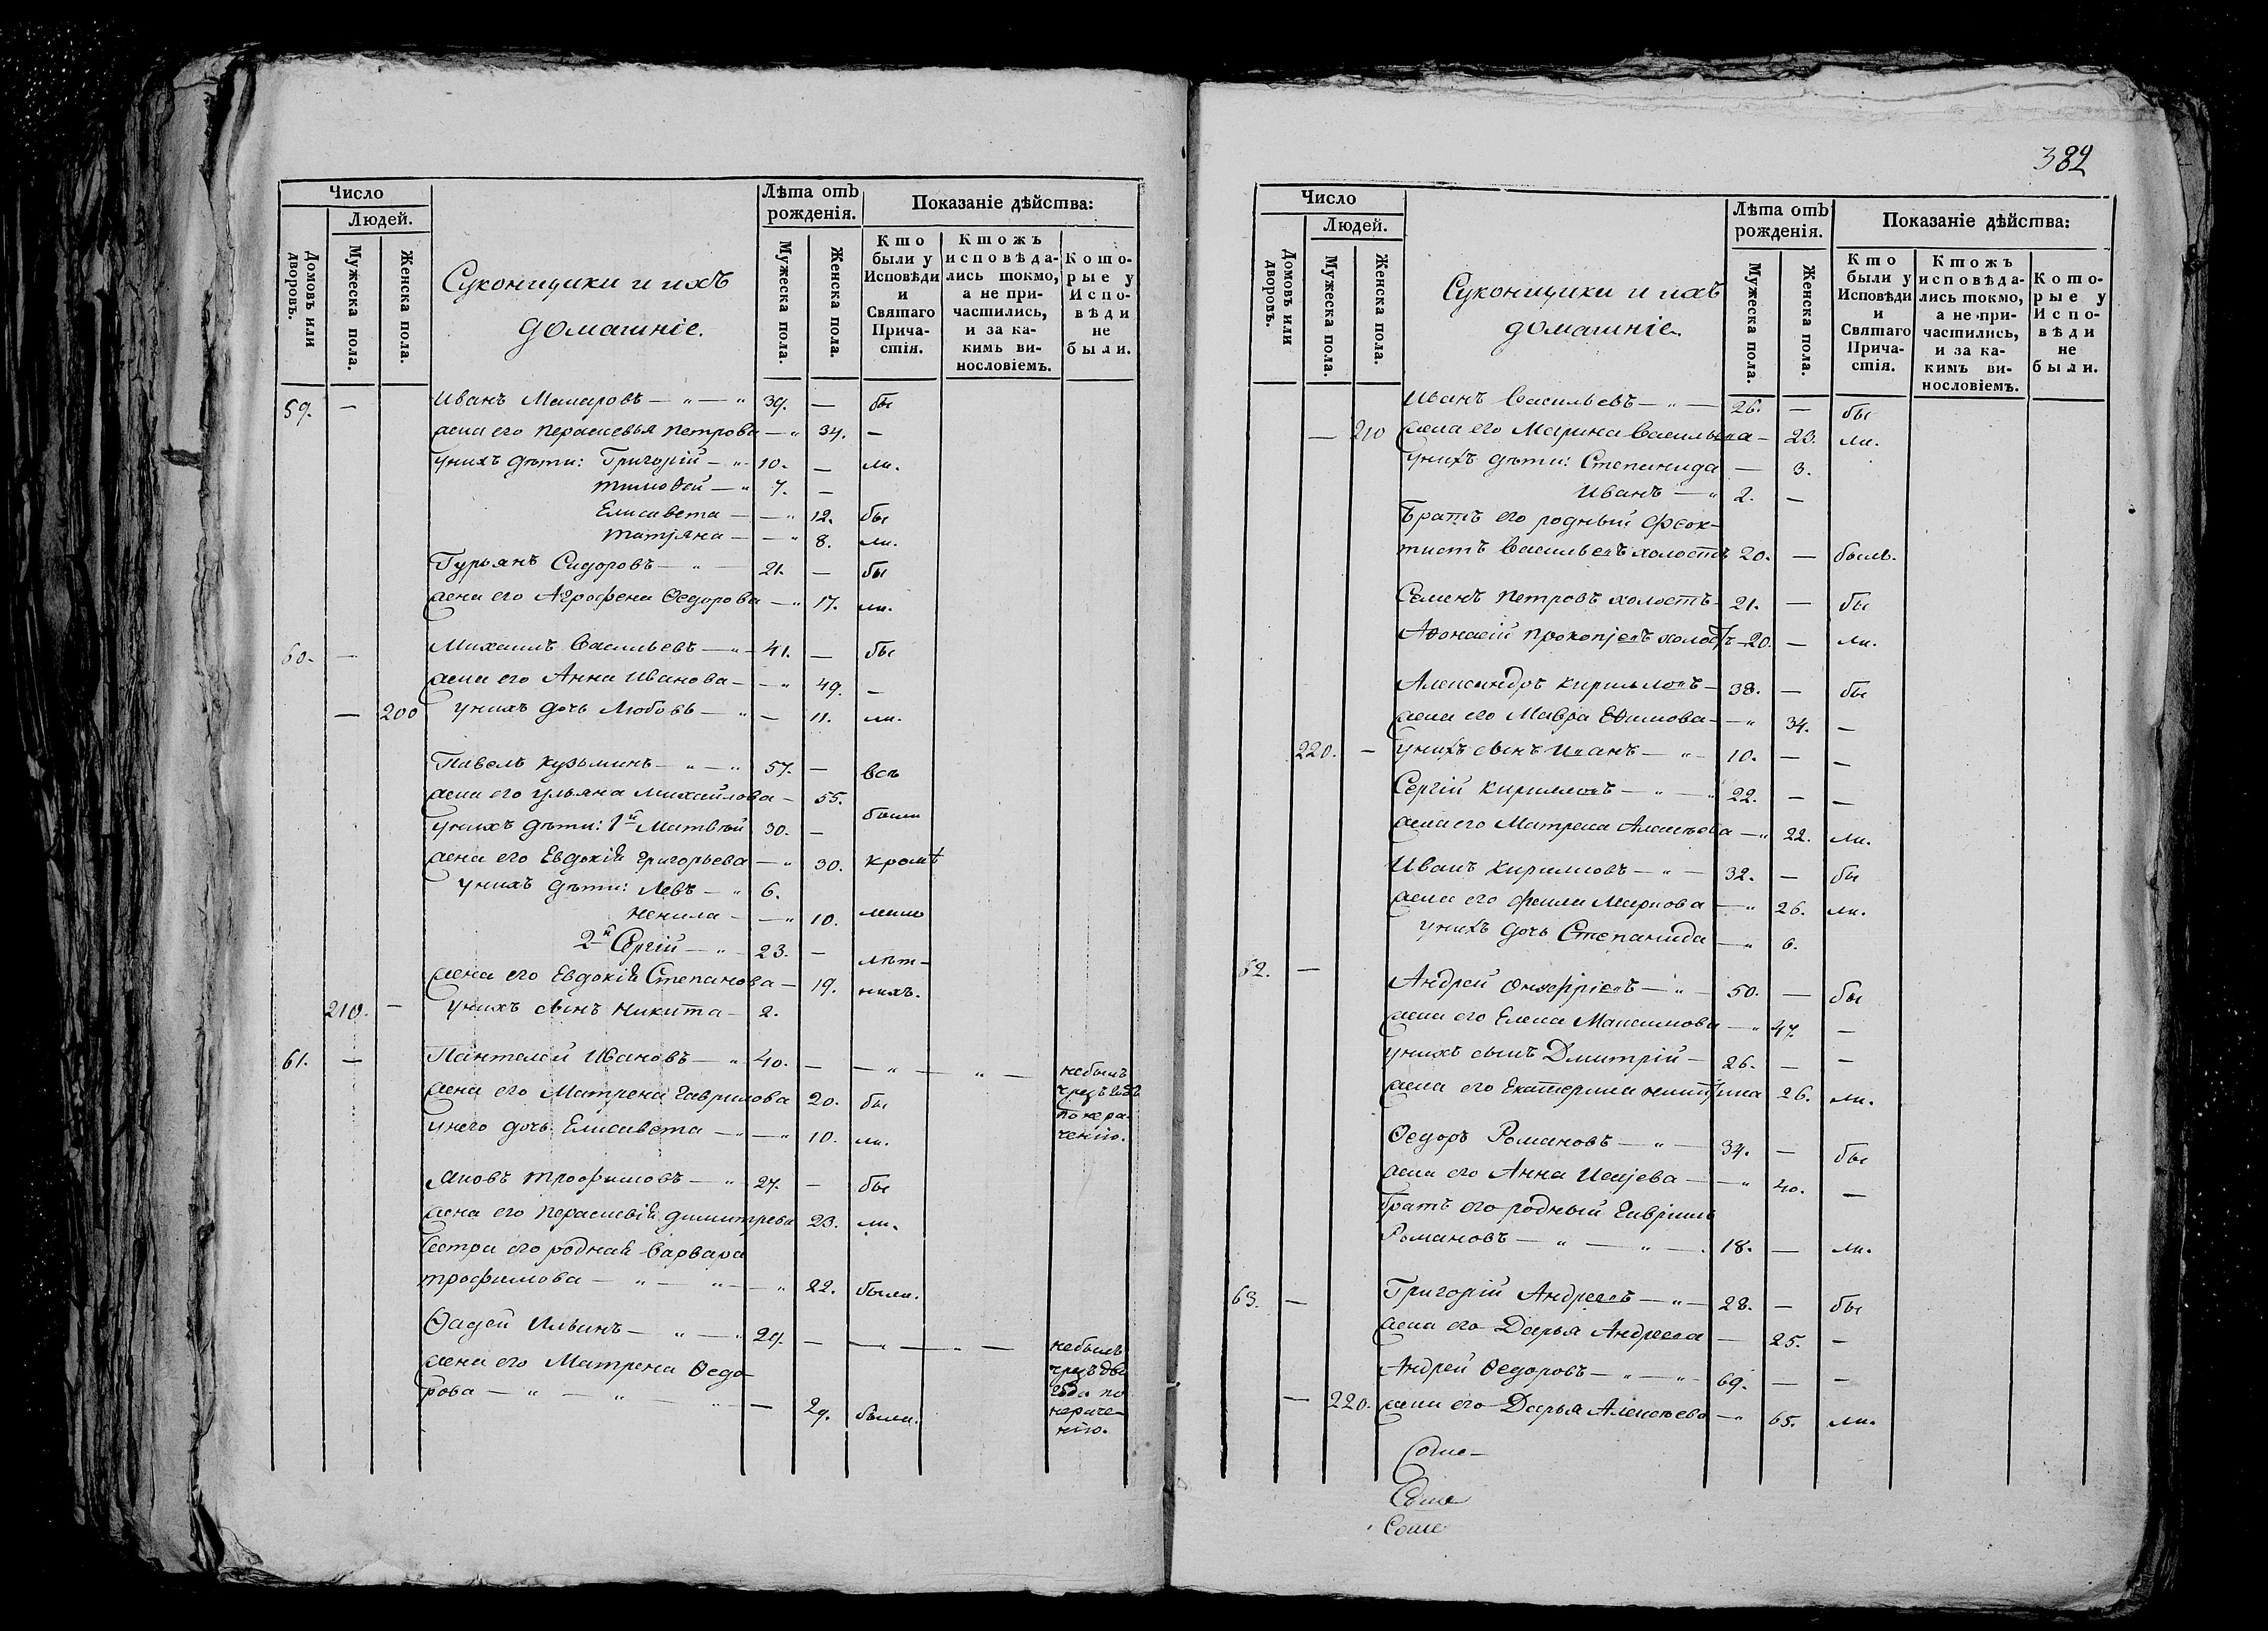 Число
Людей.
Домовъ или дворовъ.
Мужеска пола.
Женска пола.
Суконщики и ихъ
домашніе.
Лѣта отъ рожденія.
Мужеска пола.
Женска пола.
Показаніе дѣйства:
Кто были у Исповѣди и Святаго Причастія.
Ктожъ исповѣдались токмо, а не причастились, и за какимъ винословіемъ.
Которые у Исповѣди не были.
59. — Иванъ Макаровъ — „ — „ 39. — бы
жена его Перасковья Петрова — „ 34. —
у нихъ дѣти: Григорій — „ 10. — ли.
Тимофей — „ 7. —
Елисавета — — „ 12. бы
Татіяна — — „ 8. ли.
Гурьянъ Сидоровъ — „ — 21. — бы
жена его Агрофена Ѳедорова — „ 17. ли.
60. — Михаилъ Васильевъ — „ — 41. — бы
жена его Анна Иванова — — „ 49. —
— 200 у нихъ дочь Любовь — „ — 11. ли.
Павелъ Кузьминъ — „ — „ 57. — всѣ
жена его Ульяна Михайлова — 55.
были
у нихъ дѣти: 1й Матвѣй 30. —
жена его Евдокія Григорьева — „ 30. кромѣ
у нихъ дѣти: Левъ — „ 6.
Ненила — — „ 10. мало
2й Сергій — „ 23. — лѣт-
жена его Евдокія Степанова — 19. нихъ.
210. — у нихъ сынъ Никита — 2.
61. — Пантелей Ивановъ — „ 40. — — „ — „ — небылъ
жена его Матрена Гаврилова 20. бы
по нера-
у него дочь Елисавета — „ — „ 10. ли. ченію.
Яковъ Трофимовъ — „ 27. — бы
жена его Перасковія Димитрева 23. ли.
сестра его родная Варвара
Трофимова — „ — „ — „ 22. были.
Ѳадей Ильинъ — „ — „ 29. — — „ — „ — небылъ
жена его Матрена Ѳедо- чрезъ два
рова — „ — „ — „ — 29. были. года по
нераче-
нію.
382
Число
Людей.
Домовъ или дворовъ.
Мужеска пола.
Женска пола.
Суконщики и ихъ
домашніе.
Лѣта отъ рожденія.
Мужеска пола.
Женска пола.
Показаніе дѣйства:
Кто были у Исповѣди и Святаго Причастія.
Ктожъ исповѣдались токмо, а не причастились, и за какимъ винословіемъ.
Которые у Исповѣди не были.
Иванъ Васильевъ — „ — 26. — бы
— 210 жена его Марина Васильева — 23. ли.
у нихъ дѣти: Степанида — 3.
Иванъ — „ 2. —
Братъ его родный Феок-
тистъ Васильевъ холостъ 20. — былъ.
Семенъ Петровъ холостъ — 21. — бы
Афонасій Прокопіевъ холостъ — 20. — ли.
Александръ Кириловъ — 38. — бы
жена его Мавра Ефимова — „ 34. —
220. — у нихъ сынъ Иванъ — „ — 10. — —
Сергій Кириловъ — „ — „ 22. — —
жена его Матрена Алексѣева — „ 22. ли.
Иванъ Кириловъ — „ — 32. — бы
жена его Фекла Маркова — „ 26. ли.
у нихъ дочь Степанида — „ 6.
62. — Андрей Онофріевъ — „ — 50. — бы
жена его Елена Максимова — „ 47. —
у нихъ сынъ Дмитрій — 26. — —
жена его Екатерина Никитина 26. ли.
Ѳедоръ Романовъ — „ — 34. — бы
жена его Анна Исаіева — — „ 40. —
братъ его родный Гавріилъ
Романовъ — „ — „ — 18. — ли.
63. — Григорій Андреевъ — „ — 28. — бы
жена его Дарья Андреева — 25. —
Андрей Ѳедоровъ — „ — „ 69. — —
— 220. жена его Дарья Алексѣева — „ 65. ли.